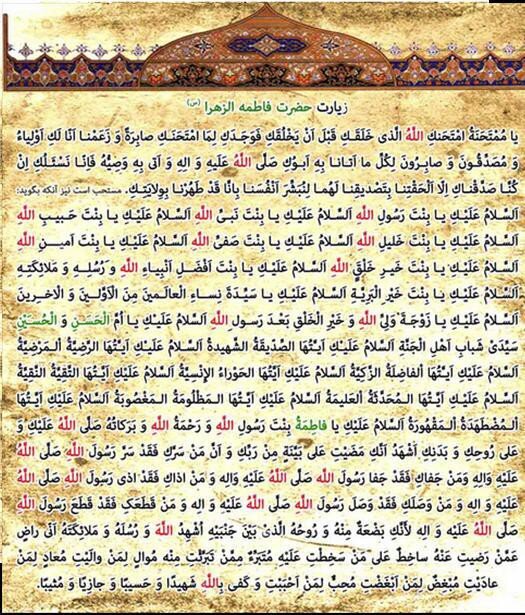 زیارت حضرت فاطمه الزهرا (س)
یا مُمْتَحَنَةُ امْتَحَنَكِ اللَّهُ الَّذی خَلَقَكِ قَبْلَ اَنْ یَخْلُقَكِ فَوَجَدَكِ لِمَا امْتَحَنَكِ صابِرَةً وَ زَعَمْنا اَنّا لَكِ اَوْلِیاءُ
وَ مُصَدِّقُونَ وَ صابِرُونَ لِكُلِّ ما اَتانا بِهِ اَبُوكِ صَلَّی اللَّهُ عَلَیْهِ وَ الِهِ وَ اَتی بِهِ وَصِیُّهُ فَاِنّا نَسْئَلُكِ اِنْ
كُنّا صَدَّقْناكِ اِلّا اَلْحَقْتِنا بِتَصْدیقِنا لَهُما لِنُبَشِّرَ اَنْفُسَنا بِاَنّا قَدْ طَهُرْنا بِوِلایَتِكِ. مستحب است نیز آنکه بگوید:
اَلسَّلامُ عَلَیْكِ یا بِنْتَ رَسُولِ اللَّهِ اَلسَّلامُ عَلَیْكِ یا بِنْتَ نَبِیِّ اللَّهِ اَلسَّلامُ عَلَیْكِ یا بِنْتَ حَبیبِ اللَّهِ
اَلسَّلامُ عَلَیْكِ یا بِنْتَ خَلیلِ اللَّهِ اَلسَّلامُ عَلَیْكِ یا بِنْتَ صَفِیِّ اللَّهِ اَلسَّلامُ عَلَیْكِ یا بِنْتَ اَمینِ اللَّهِ
اَلسَّلامُ عَلَیْكِ یا بِنْتَ خَیرِ خَلْقِ اللَّهِ اَلسَّلامُ عَلَیْكِ یا بِنْتَ اَفْضَلِ اَنْبِیاءِ اللَّهِ وَ رُسُلِهِ وَ مَلائِكَتِهِ
اَلسَّلامُ عَلَیْكِ یا بِنْتَ خَیْرِ الْبَرِیَّةِ اَلسَّلامُ عَلَیْكِ یا سَیِّدَةَ نِساءِ الْعالَمینَ مِنَ الْاَوَّلینَ وَ الْاخِرینَ
اَلسَّلامُ عَلَیْكِ یا زَوْجَةَ وَلِیِّ اللَّهِ وَ خَیْرِ الْخَلْقِ بَعْدَ رَسولِ اللَّهِ اَلسَّلامُ عَلَیْكِ یا اُمَّ الْحَسَنِ وَ الْحُسَیْنِ
سَیِّدَیْ شَبابِ اَهْلِ الْجَنَّةِ اَلسَّلامُ عَلَیْكِ اَیَّتُهَا الصِّدّیقَةُ الشَّهیدةُ اَلسَّلامُ عَلَیْكِ اَیَّتُهَا الرَّضِیَّةُ الْمَرْضِیَّةُ
اَلسَّلامُ عَلَیْكِ اَیَّتُهَا الْفاضِلَةُ الزَّكِیَّةُ اَلسَّلامُ عَلَیْكِ اَیَّتُهَا الْحَوْراءُ الْاِنْسِیَّةُ اَلسَّلامُ عَلَیْكِ اَیَّتُهَا التَّقِیَّةُ النَّقِیَّةُ
اَلسَّلامُ عَلَیْكِ اَیَّتُهَا الْمُحَدَّثَةُ الْعَلیمَةُ اَلسَّلامُ عَلَیْكِ اَیَّتُهَا الْمَظْلُومَةُ الْمَغْصُوبَةُ اَلسَّلامُ عَلَیْكِ اَیَّتُهَا
الْمُضْطَهَدَةُ الْمَقْهُورَةُ اَلسَّلامُ عَلَیْكِ یا فاطِمَةُ بِنْتَ رَسُولِ اللَّهِ وَ رَحْمَةُ اللَّهِ وَ بَرَكاتُهُ صَلَّی اللَّهُ عَلَیْكِ وَ
عَلی رُوحِكِ وَ بَدَنِكِ اَشْهَدُ اَنَّكِ مَضَیْتِ عَلی بَیِّنَةٍ مِنْ رَبِّكِ وَ اَنَّ مَنْ سَرَّكِ فَقَدْ سَرَّ رَسُولَ اللَّهِ صَلَّی اللَّهُ
عَلَیْهِ وَالِهِ وَمَنْ جَفاكِ فَقَدْ جَفا رَسُولَ اللَّهِ صَلَّی اللَّهُ عَلَیْهِ وَالِهِ وَ مَنْ اذاكِ فَقَدْ اذی رَسُولَ اللَّهِ صَلَّی اللَّهُ
عَلَیْهِ وَ الِهِ وَ مَنْ وَصَلَكِ فَقَدْ وَصَلَ رَسُولَ اللَّهِ صَلَّی اللَّهُ عَلَیْهِ وَ الِهِ وَ مَنْ قَطَعَكِ فَقَدْ قَطَعَ رَسُولَ اللَّهِ
صَلَّی اللَّهُ عَلَیْهِ وَ الِهِ لِأَنَّكِ بَضْعَةٌ مِنْهُ وَ رُوحُهُ الَّذیْ بَیْنَ جَنْبَیْهِ اُشْهِدُ اللَّهَ وَ رُسُلَهُ وَ مَلائكَتَهُ اَنّی راضٍ
عَمَّنْ رَضیتِ عَنْهُ ساخِطٌ عَلی مَنْ سَخِطْتِ عَلَیْهِ مُتَبَرِّءٌ مِمَّنْ تَبَرَّئْتِ مِنْهُ مُوالٍ لِمَنْ والَیْتِ مُعادٍ لِمَنْ
عادَیْتِ مُبْغِضٌ لِمَنْ اَبْغَضْتِ مُحِبٌّ لِمَنْ اَحْبَبْتِ وَ كَفی بِاللَّهِ شَهیدًا وَ حَسیبًا وَ جازِیًا وَ مُثیبًا.